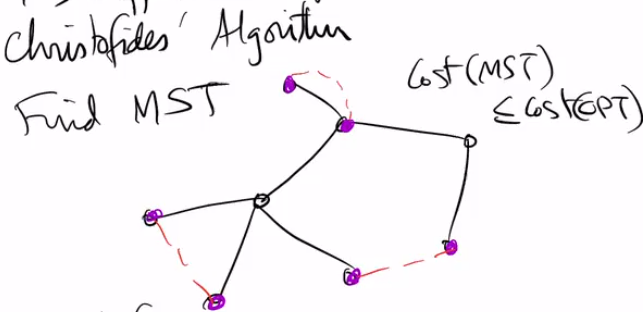 Christofides' Algorithm
Find MST
Cost(MST)
≤ Cost(OPT)